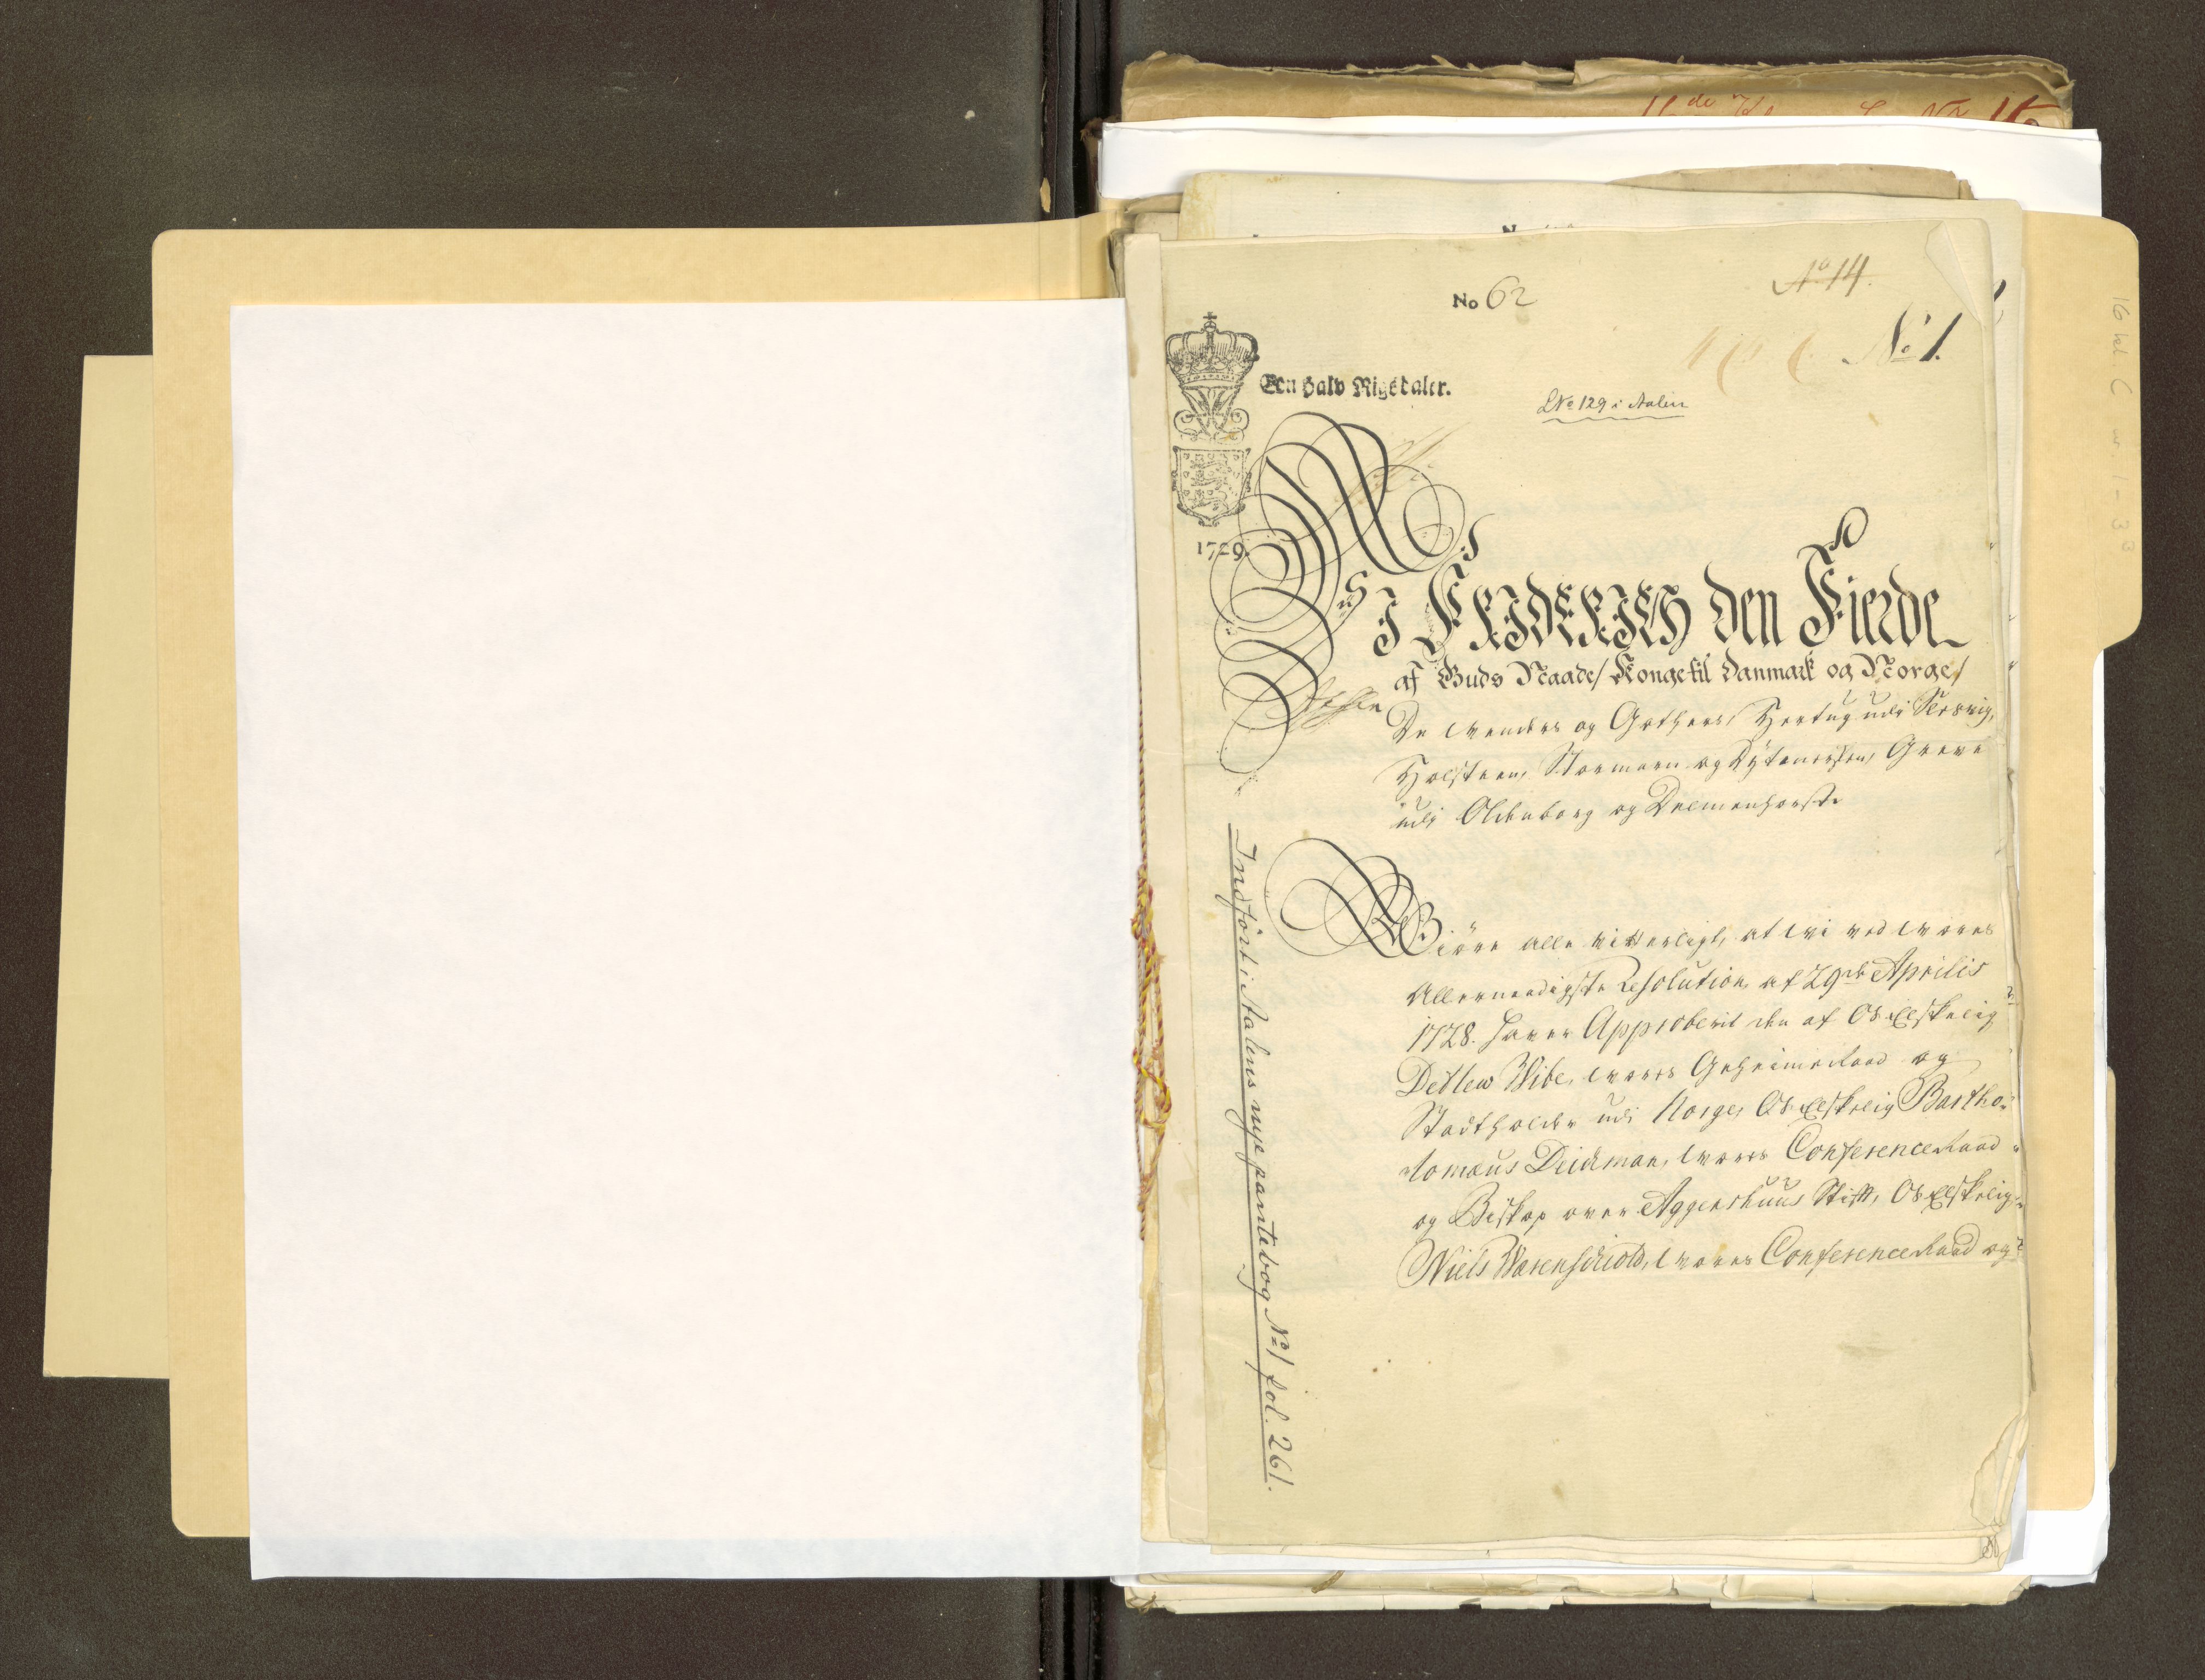 No 62
No 14.
No 1.
Een Halv Rigsdaler.
LNo 129 i Aalen
1729.
Wi FRIDERICH den Fierde
af Guds Naade/ Konge til Danmark og Norge/
De Wenders og Gothers/ Hertug udi Slesvig,
Holsteen, Stormarn og Dytmersken, Greve
udi Oldenborg og Delmenhorst.
Giöre alle vitterligt, at Wi ved Wores
Allernaadigste Resolution af 29de Aprilis
1728. haver Approberit den af Os Elskelig
Ditlew Wibe, Wores Geheime Raad og
Stadtholder udi Norge, Os Elskelig Bartho-
lomæus Deichman, Wores Conference Raad
og Biskop over Aggershuus Stift, Os Elskelig
Niels Warenschiold, Wores Conference Raad og
Indført i Aalens nye pantebog No 1 fol. 261.
16 kl C nr 1 - 33